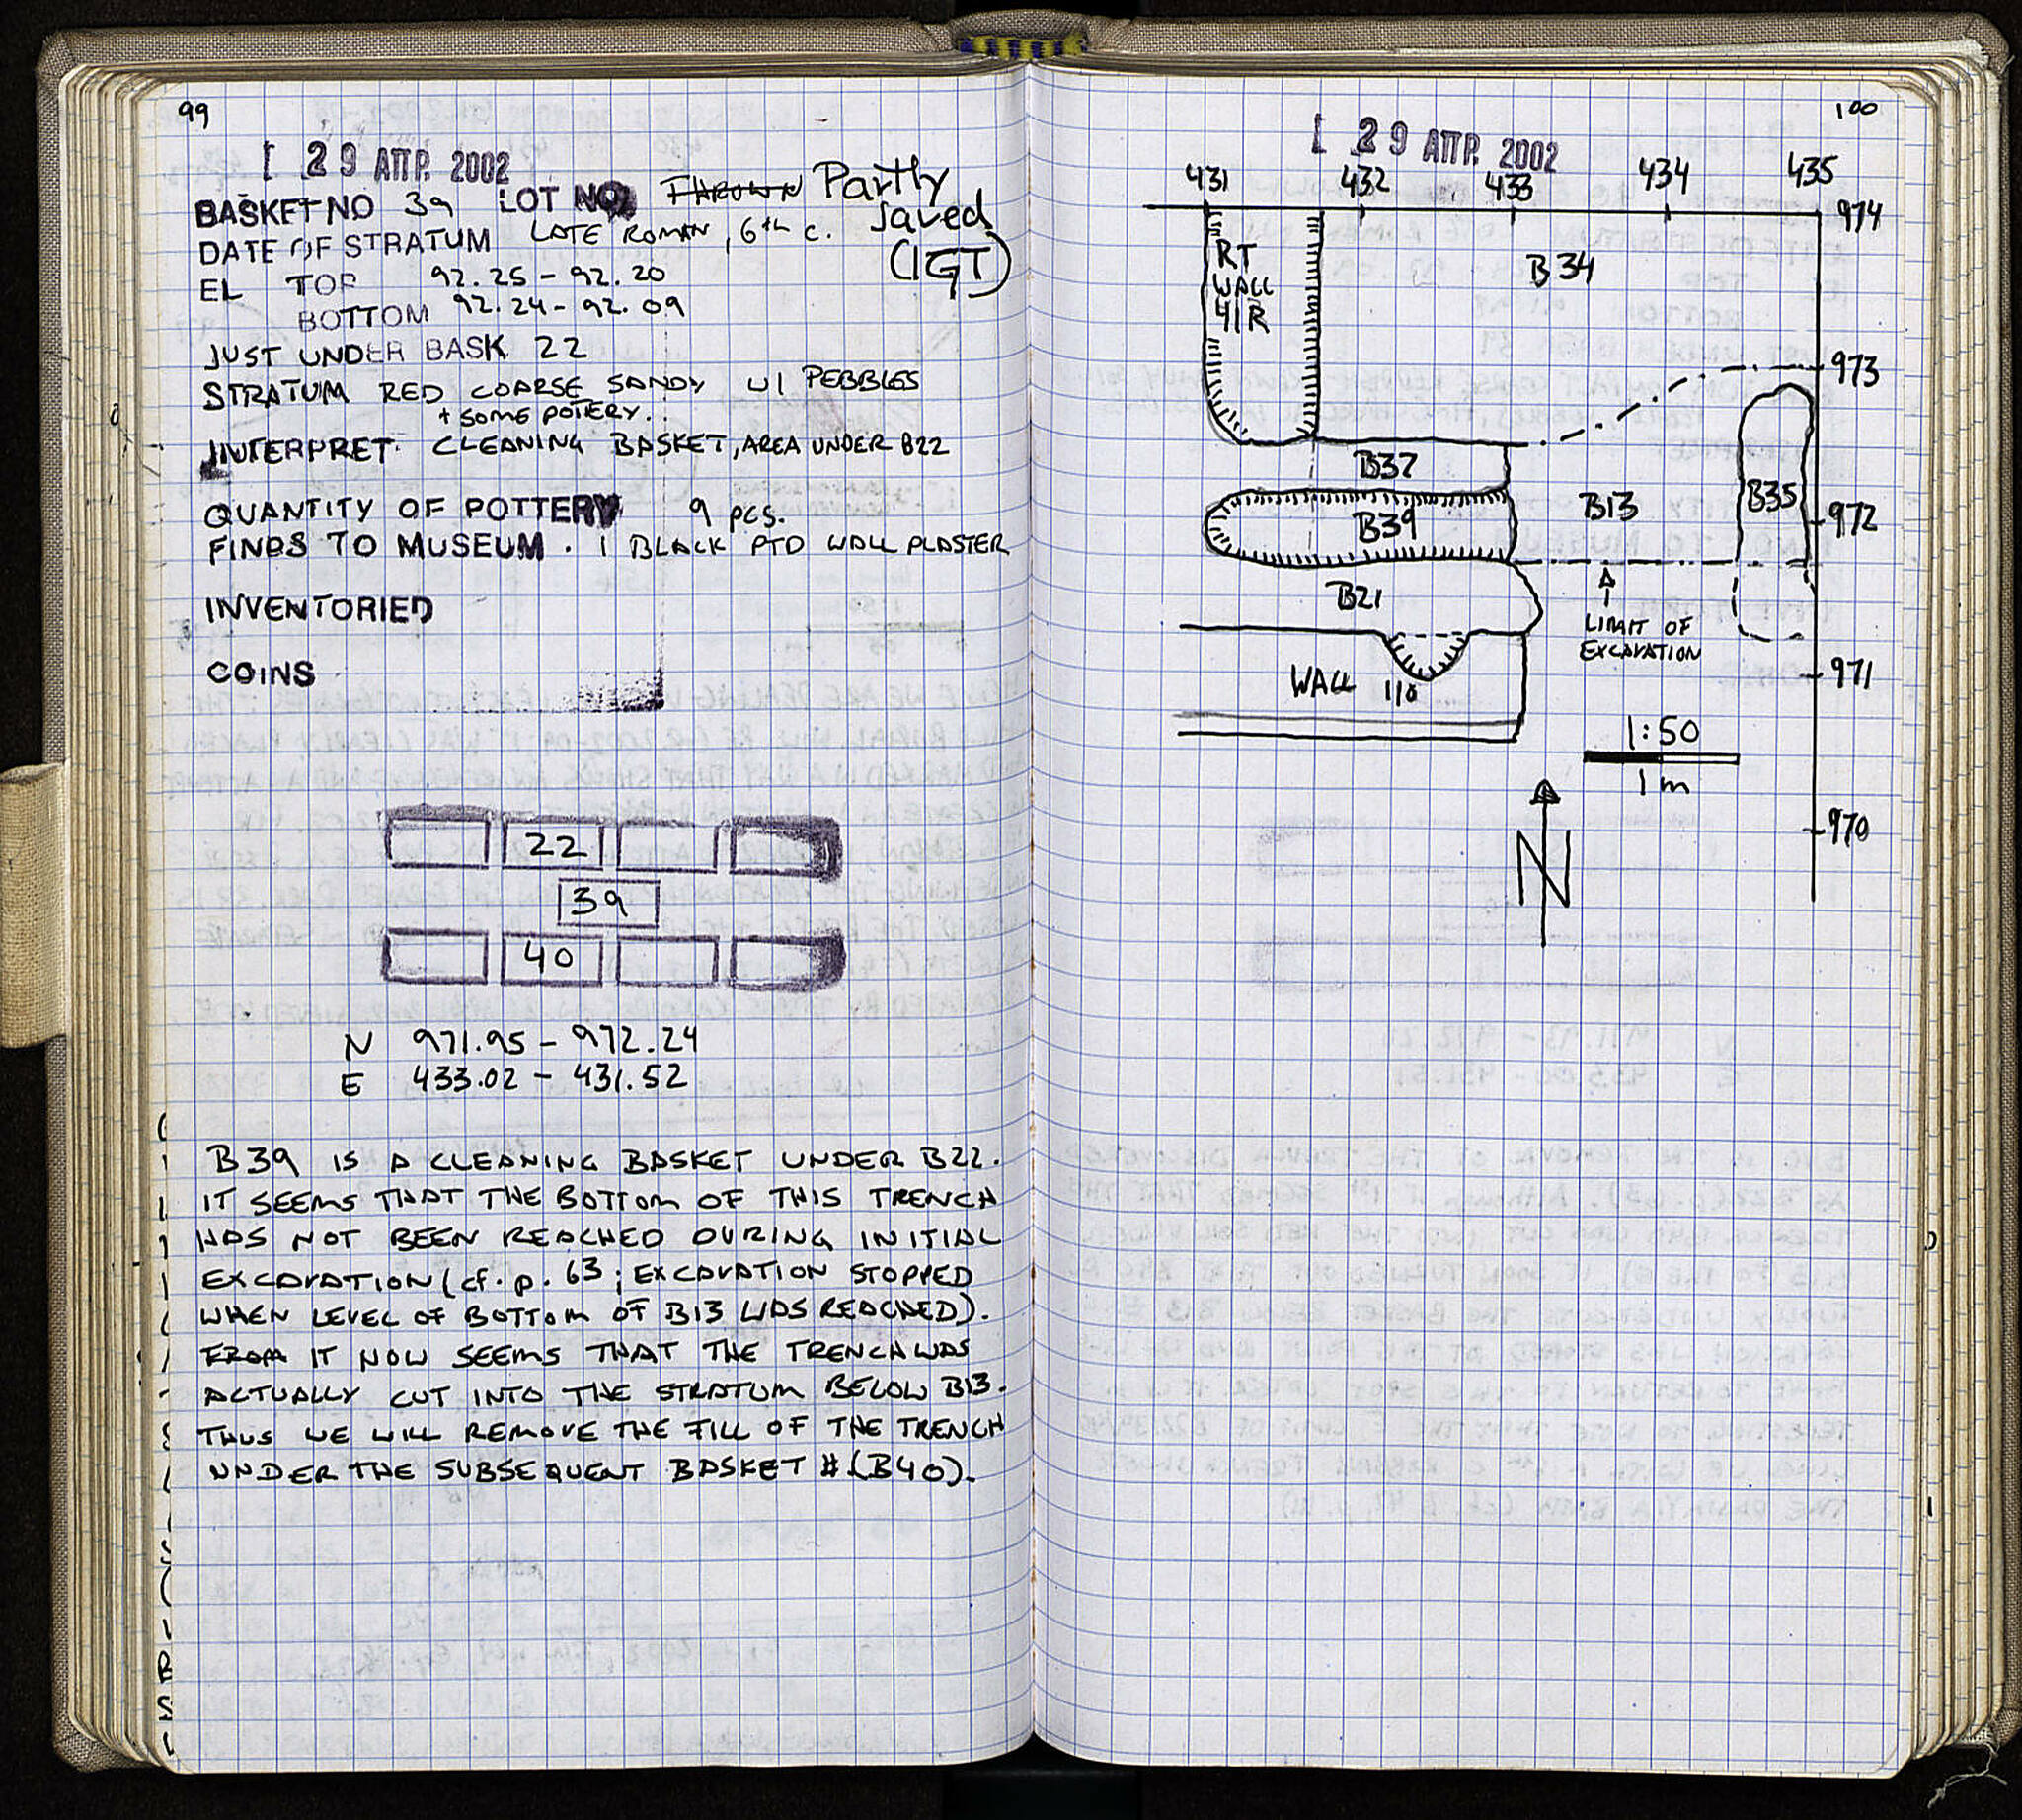 99
[ 29 ΑΠΡ. 2002
BASKET NO 39 LOT NO THROWN Partly
saved
(IGT)
DATE OF STRATUM LATE ROMAN, 6th c.
EL TOP 92.25 - 92.20
BOTTOM 92.24 - 92.09
JUST UNDER BASK 22
STRATUM RED COARSE SANDY w/ PEBBLES
+ SOME POTTERY.
INTERPRET. CLEANING BASKET, AREA UNDER B22
QUANTITY OF POTTERY 9 pcs.
FINDS TO MUSEUM. 1 BLACK PTD WALL PLASTER
INVENTORIED
COINS
22
39
40
N 971.95 - 972.24
E 433.02 - 431.52
B39 IS A CLEANING BASKET UNDER B22.
IT SEEMS THAT THE BOTTOM OF THIS TRENCH
HAS NOT BEEN REACHED DURING INITIAL
EXCAVATION (cf. p. 63; EXCAVATION STOPPED
WHEN LEVEL OF BOTTOM OF B13 WAS REACHED).
FROM IT NOW SEEMS THAT THE TRENCH WAS
ACTUALLY CUT INTO THE STRATUM BELOW B13.
THUS WE WILL REMOVE THE FILL OF THE TRENCH
UNDER THE SUBSEQUENT BASKET # (B40).
100
[ 29 ΑΠΡ. 2002
431 432 433 434 435
974
RT
WALL
41R
B34
973
B37
B39
B13
B35
972
B21
LIMIT OF
EXCAVATION
WALL 110
971
1:50
1 m
970
N